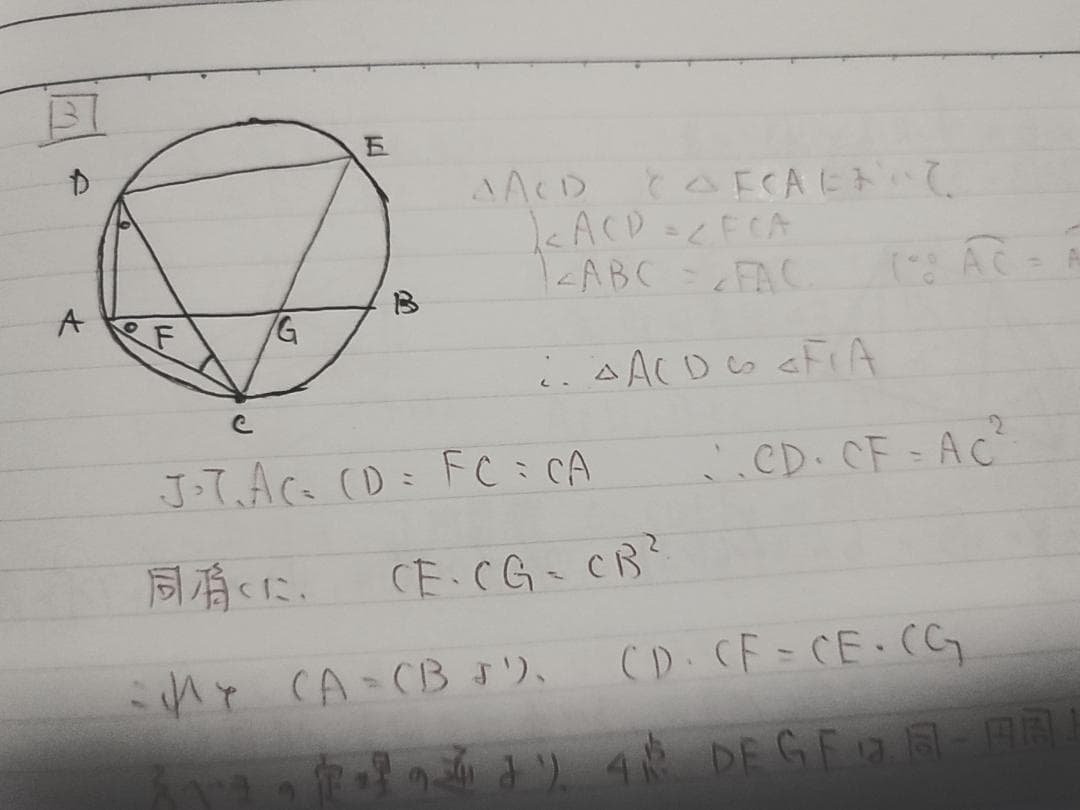 3
D
E
A
F
G
B
C
△ACD と △FCAにおいて、
∠ACD = ∠FCA
∠ABC = ∠FAC (∵ AC = A
∴ △ACD ∽ ∠FCA
よって、AC = CD = FC : CA ∴ CD・CF = AC²
同様に、 CE・CG = CB²
これと CA = CB より、 CD・CF = CE・CG
の定理の逆より、4点 DEGFは同一円周上